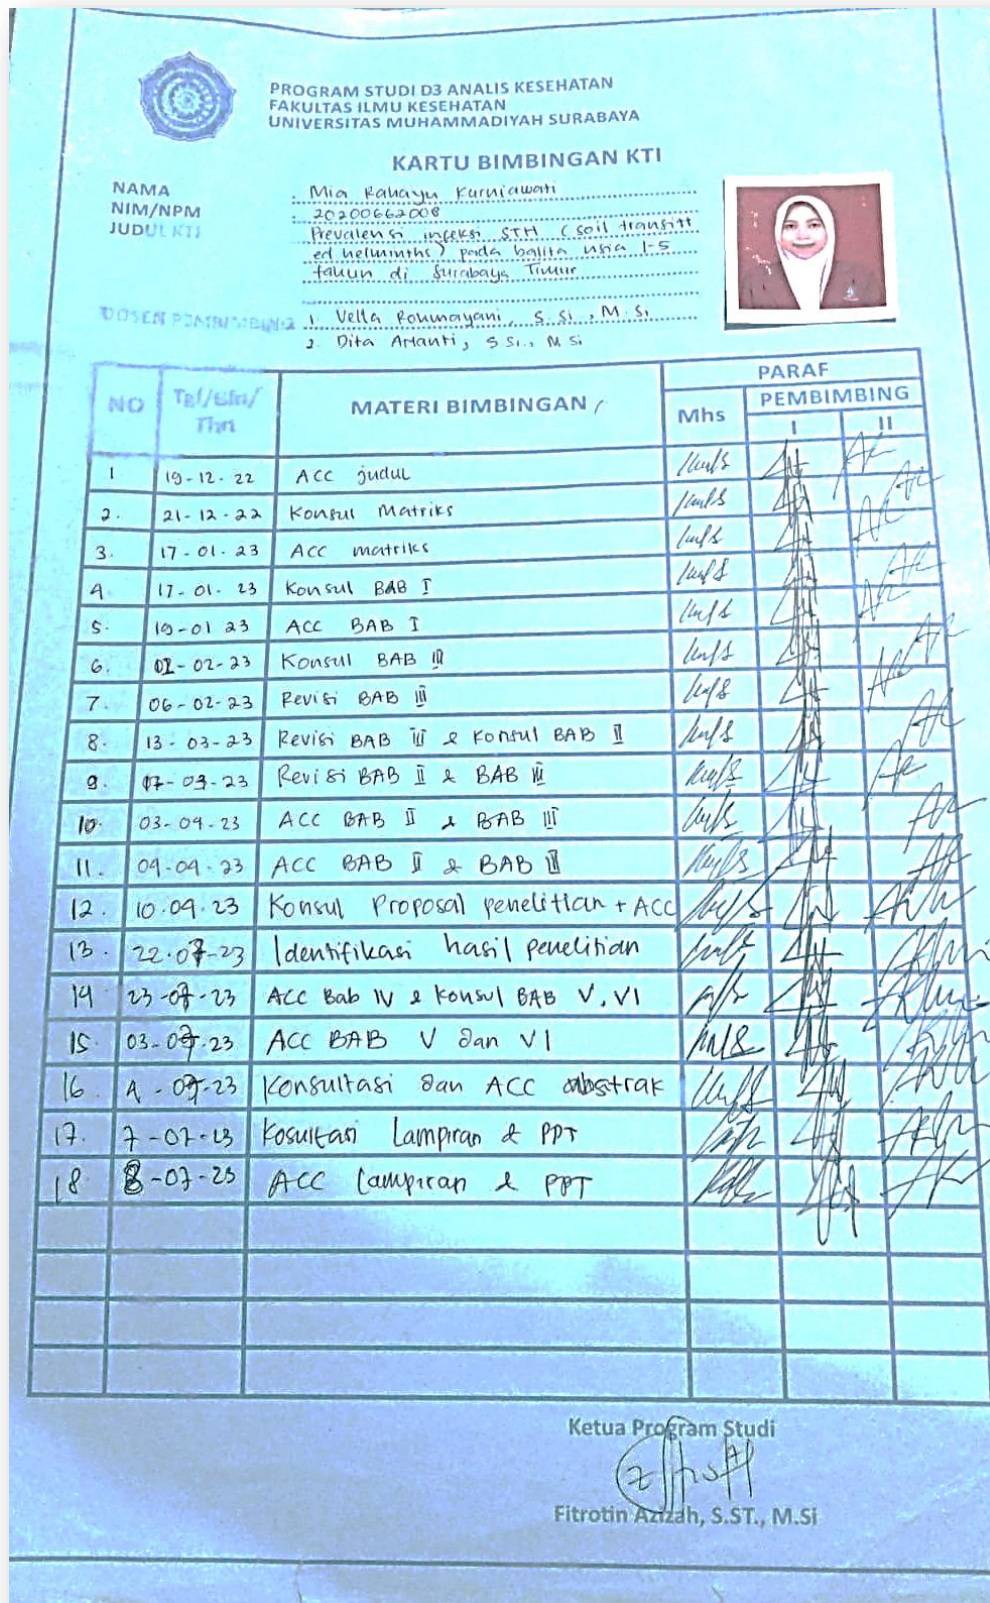 PROGRAM STUDI D3 ANALIS KESEHATAN
FAKULTAS ILMU KESEHATAN
UNIVERSITAS MUHAMMADIYAH SURABAYA
KARTU BIMBINGAN KTI
NAMA : Mia Rahayu Kurniawati
NIM/NPM : 20200662008
JUDUL KTI : Prevalensi infeksi STH (soil transitt
ed helminths) pada balita usia 1-5
tahun di Surabaya Timur
DOSEN PEMBIMBING 1. Vella Rohmayani, S.Si., M.Si
2. Dita Artanti, S Si., M Si
NO Tgl/Bln/Thn MATERI BIMBINGAN PARAF
Mhs PEMBIMBING
I II
1 19-12-22 ACC judul
2. 21-12-22 Konsul Matriks
3. 17-01-23 ACC matriks
4. 17-01-23 Konsul BAB I
5. 19-01 23 ACC BAB I
6. 02-23 Konsul BAB III
7. 06-02-23 Revisi BAB III
8. 13-03-23 Revisi BAB III & Konsul BAB II
9. Revisi BAB II & BAB III
10. 03-04-23 ACC BAB II & BAB III
11. 04-04-23 ACC BAB II & BAB III
12. 10.04.23 Konsul Proposal penelitian + ACC
13. 22.07-23 Identifikasi hasil penelitian
14 23-07-23 ACC Bab IV & Konsul BAB V, VI
15 03-07.23 ACC BAB V dan VI
16. 4-07-23 Konsultasi dan ACC abstrak
17. 7-07-23 Kosultasi Lampiran & PPT
18 8-07-23 ACC Lampiran & PPT
Ketua Program Studi
Fitrotin Azizah, S.ST., M.Si